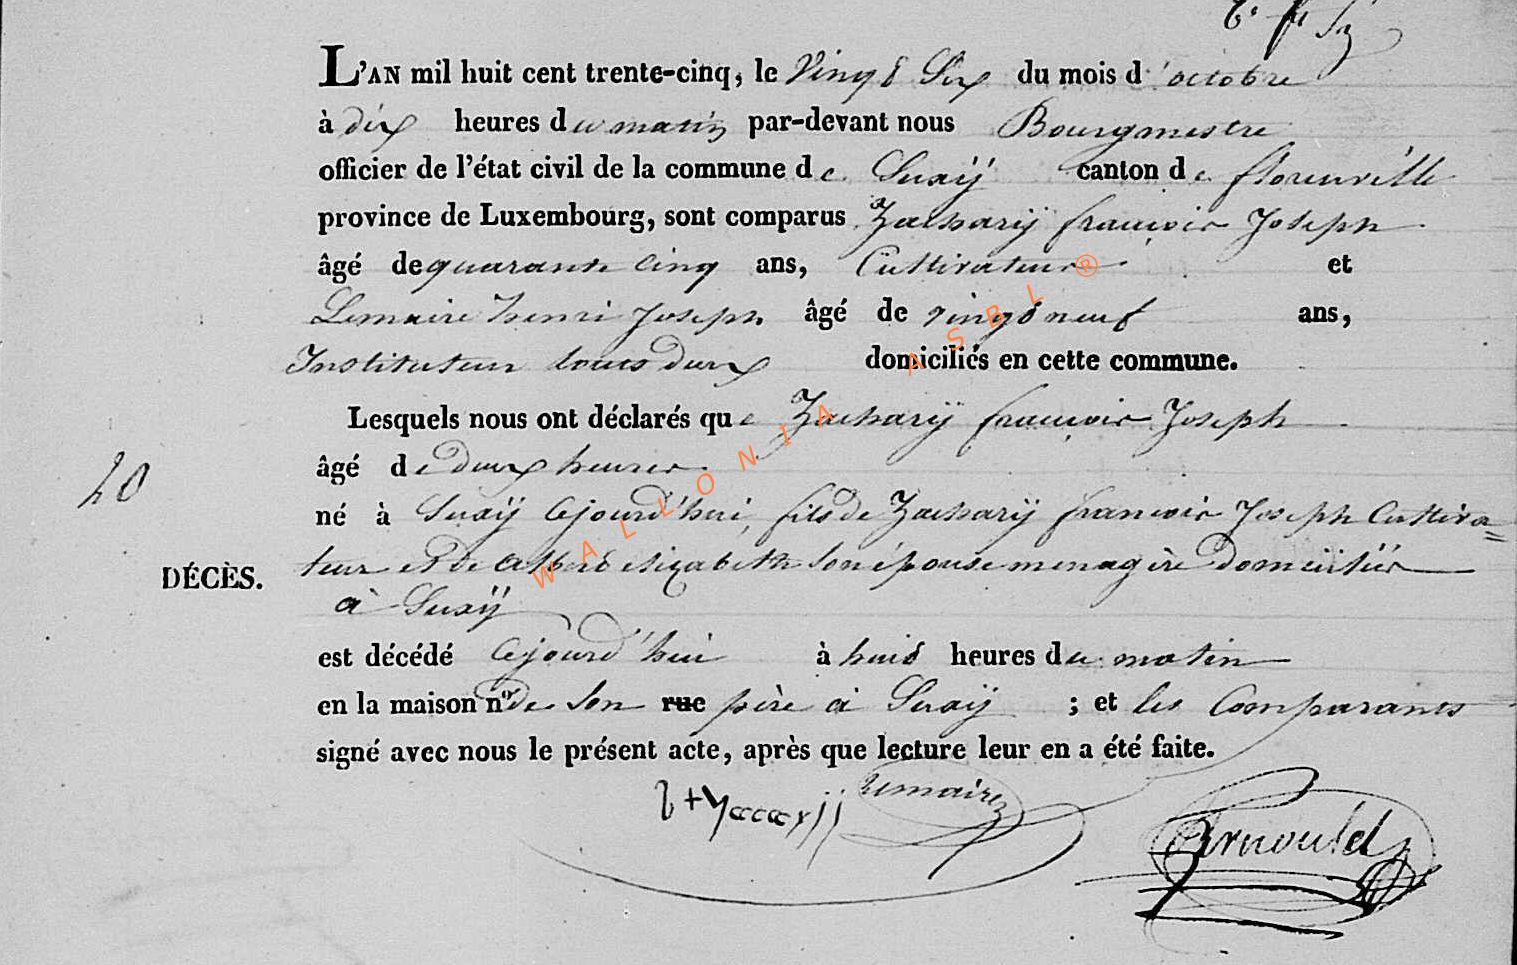 L'AN mil huit cent trente-cinq, le Vingt Six du mois d'octobre
à dix heures du matin par-devant nous Bourgmestre
officier de l'état civil de la commune de Suxÿ canton de florenville
province de Luxembourg, sont comparus Zacharÿ françois Joseph
âgé de quarante cinq ans, Cultivateur et
Lemaire henri Joseph âgé de vingt neuf ans,
Instituteur tous deux domiciliés en cette commune.
Lesquels nous ont déclarés que Zacharÿ françois Joseph
âgé de deux heures
né à Suxÿ Cejourd'hui, fils de Zacharÿ françois Joseph Cultiva=
20
teur et de elizabeth son épouse menagère domiciliés
DÉCÈS.
à Suxÿ
est décédé Cejourd'hui à huit heures du matin
en la maison n° de son rue père à Suxÿ ; et les Comparants
signé avec nous le présent acte, après que lecture leur en a été faite.
Lemaire
Arnould
WALLONIA ASBL ®